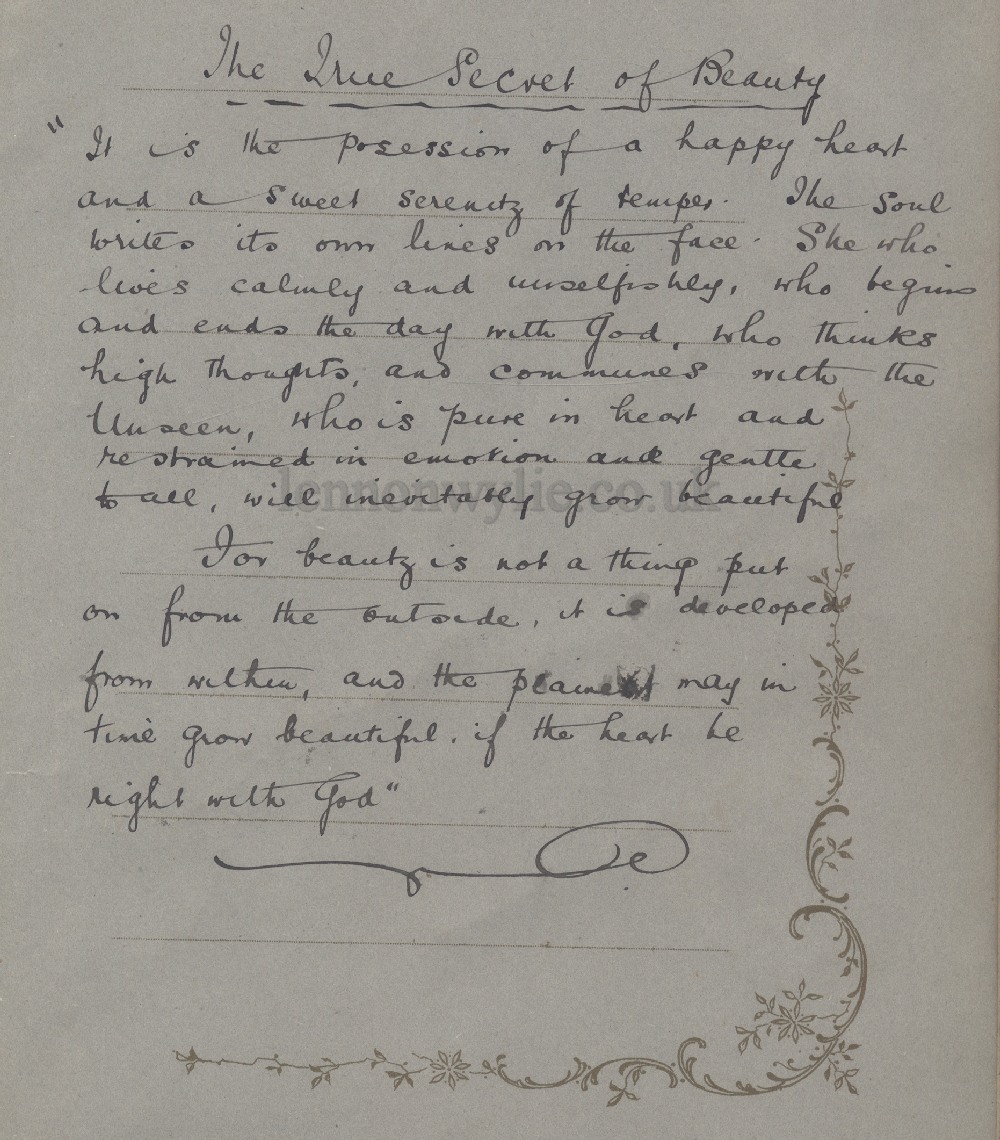 The True Secret of Beauty
"It is the posession of a happy heart
and a sweet serenity of temper. The soul
writes its own lines on the face. She who
lives calmly and unselfishly, who begins
and ends the day with God, who thinks
high thoughts, and communes with the
Unseen, who is pure in heart and
restrained in emotion and gentle
to all, will inevitably grow beautiful
lennonwylie.co.uk
For beauty is not a thing put
on from the outside, it is developed
from within, and the plainest may in
time grow beautiful, if the heart be
right with God"